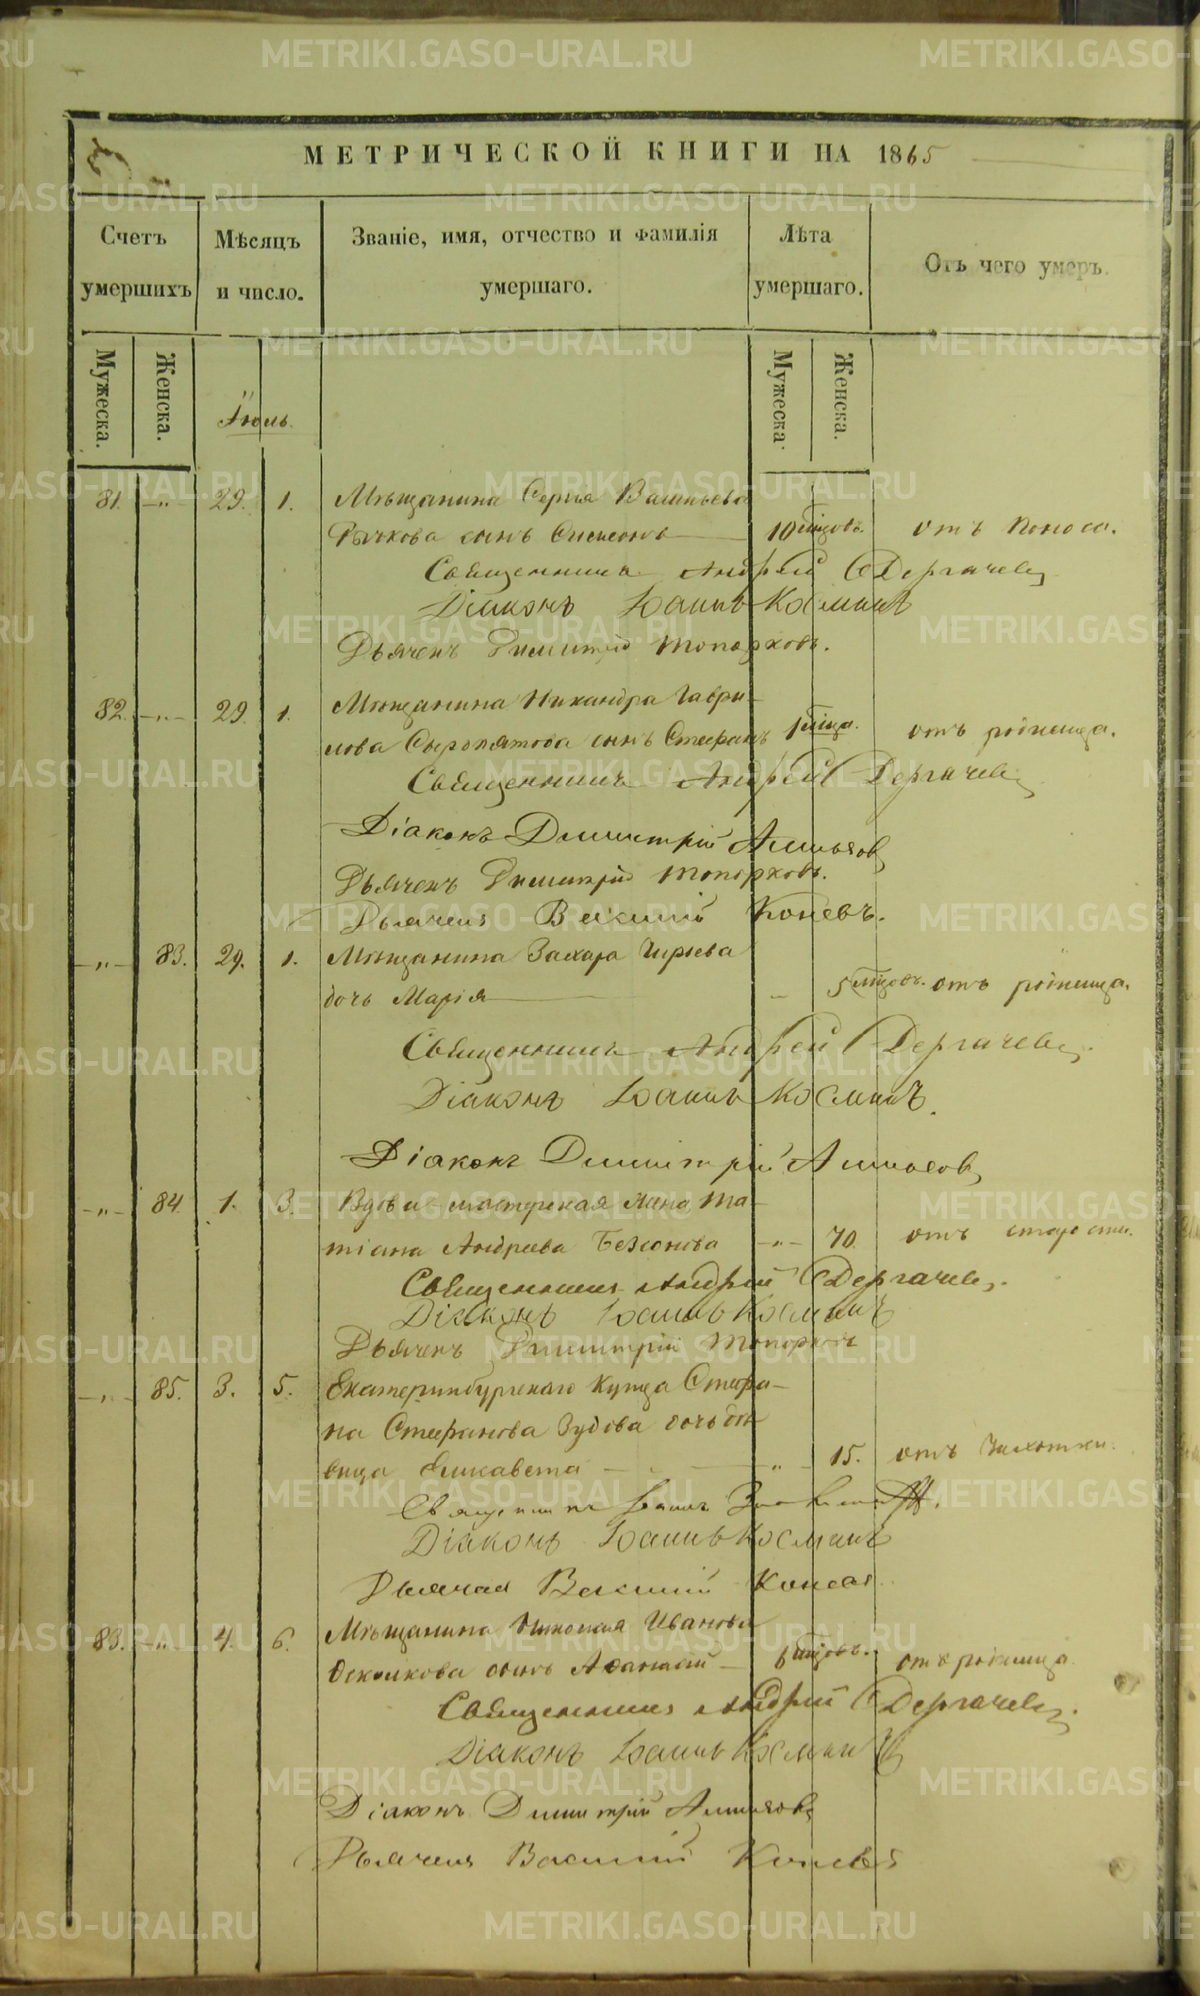 МЕТРИЧЕСКОЙ КНИГИ НА 1865
Счетъ умершихъ
Мѣсяцъ и число.
Званіе, имя, отчество и фамилія умершаго.
Лѣта умершаго.
Отъ чего умеръ.
Мужеска. Женска. Іюль. Мужеска Женска.
81. -„- 29. 1. Мѣщанина Сергѣя Васильева
Рычкова сынъ Симеонъ 10 мѣсцовъ. отъ поноса.
Священникъ Андрей Дергачевъ
Діаконъ Іоаннъ Косминъ
Дьячекъ Димитрій Топорковъ.
82. -„- 29. 1. Мѣщанина Никандра Гаври-
лова Сыропятова сынъ Стефанъ 1 мсца. отъ родимца.
Священникъ Андрей Дергачевъ
Діаконъ Димитрій
Дьячекъ Димитрій Топорковъ.
Дьячекъ Василій Коневъ.
-„- 83. 29. 1. Мѣщанина Захара
дочь Марія - 5 мсцовъ. отъ родимца.
Священникъ Андрей Дергачевъ.
Діаконъ Іоаннъ Косминъ.
Діаконъ Димитрій
-„- 84. 1. 3. Вдова мастерская жена Та-
тіана Андреева -„- 70. отъ старости.
Священникъ Андрей Дергачевъ.
Діаконъ Іоаннъ Косминъ
Дьячекъ Димитрій Топорковъ
-„- 85. 3. 5. Екатеринбургскаго купца Стефа-
на Стефанова Зудова дочь дѣ
вица Елисавета -„- 15. отъ чахотки.
Священникъ Іоаннъ
Діаконъ Іоаннъ Косминъ
Дьячекъ Василій Коневъ.
83. -„- 4. 6. Мѣщанина Николая Иванова
сынъ Афанасій - 6 мсцовъ. отъ родимца.
Священникъ Андрей Дергачевъ.
Діаконъ Іоаннъ Косминъ
Діаконъ Димитрій
Дьячекъ Василій Коневъ
METRIKI.GASO-URAL.RU